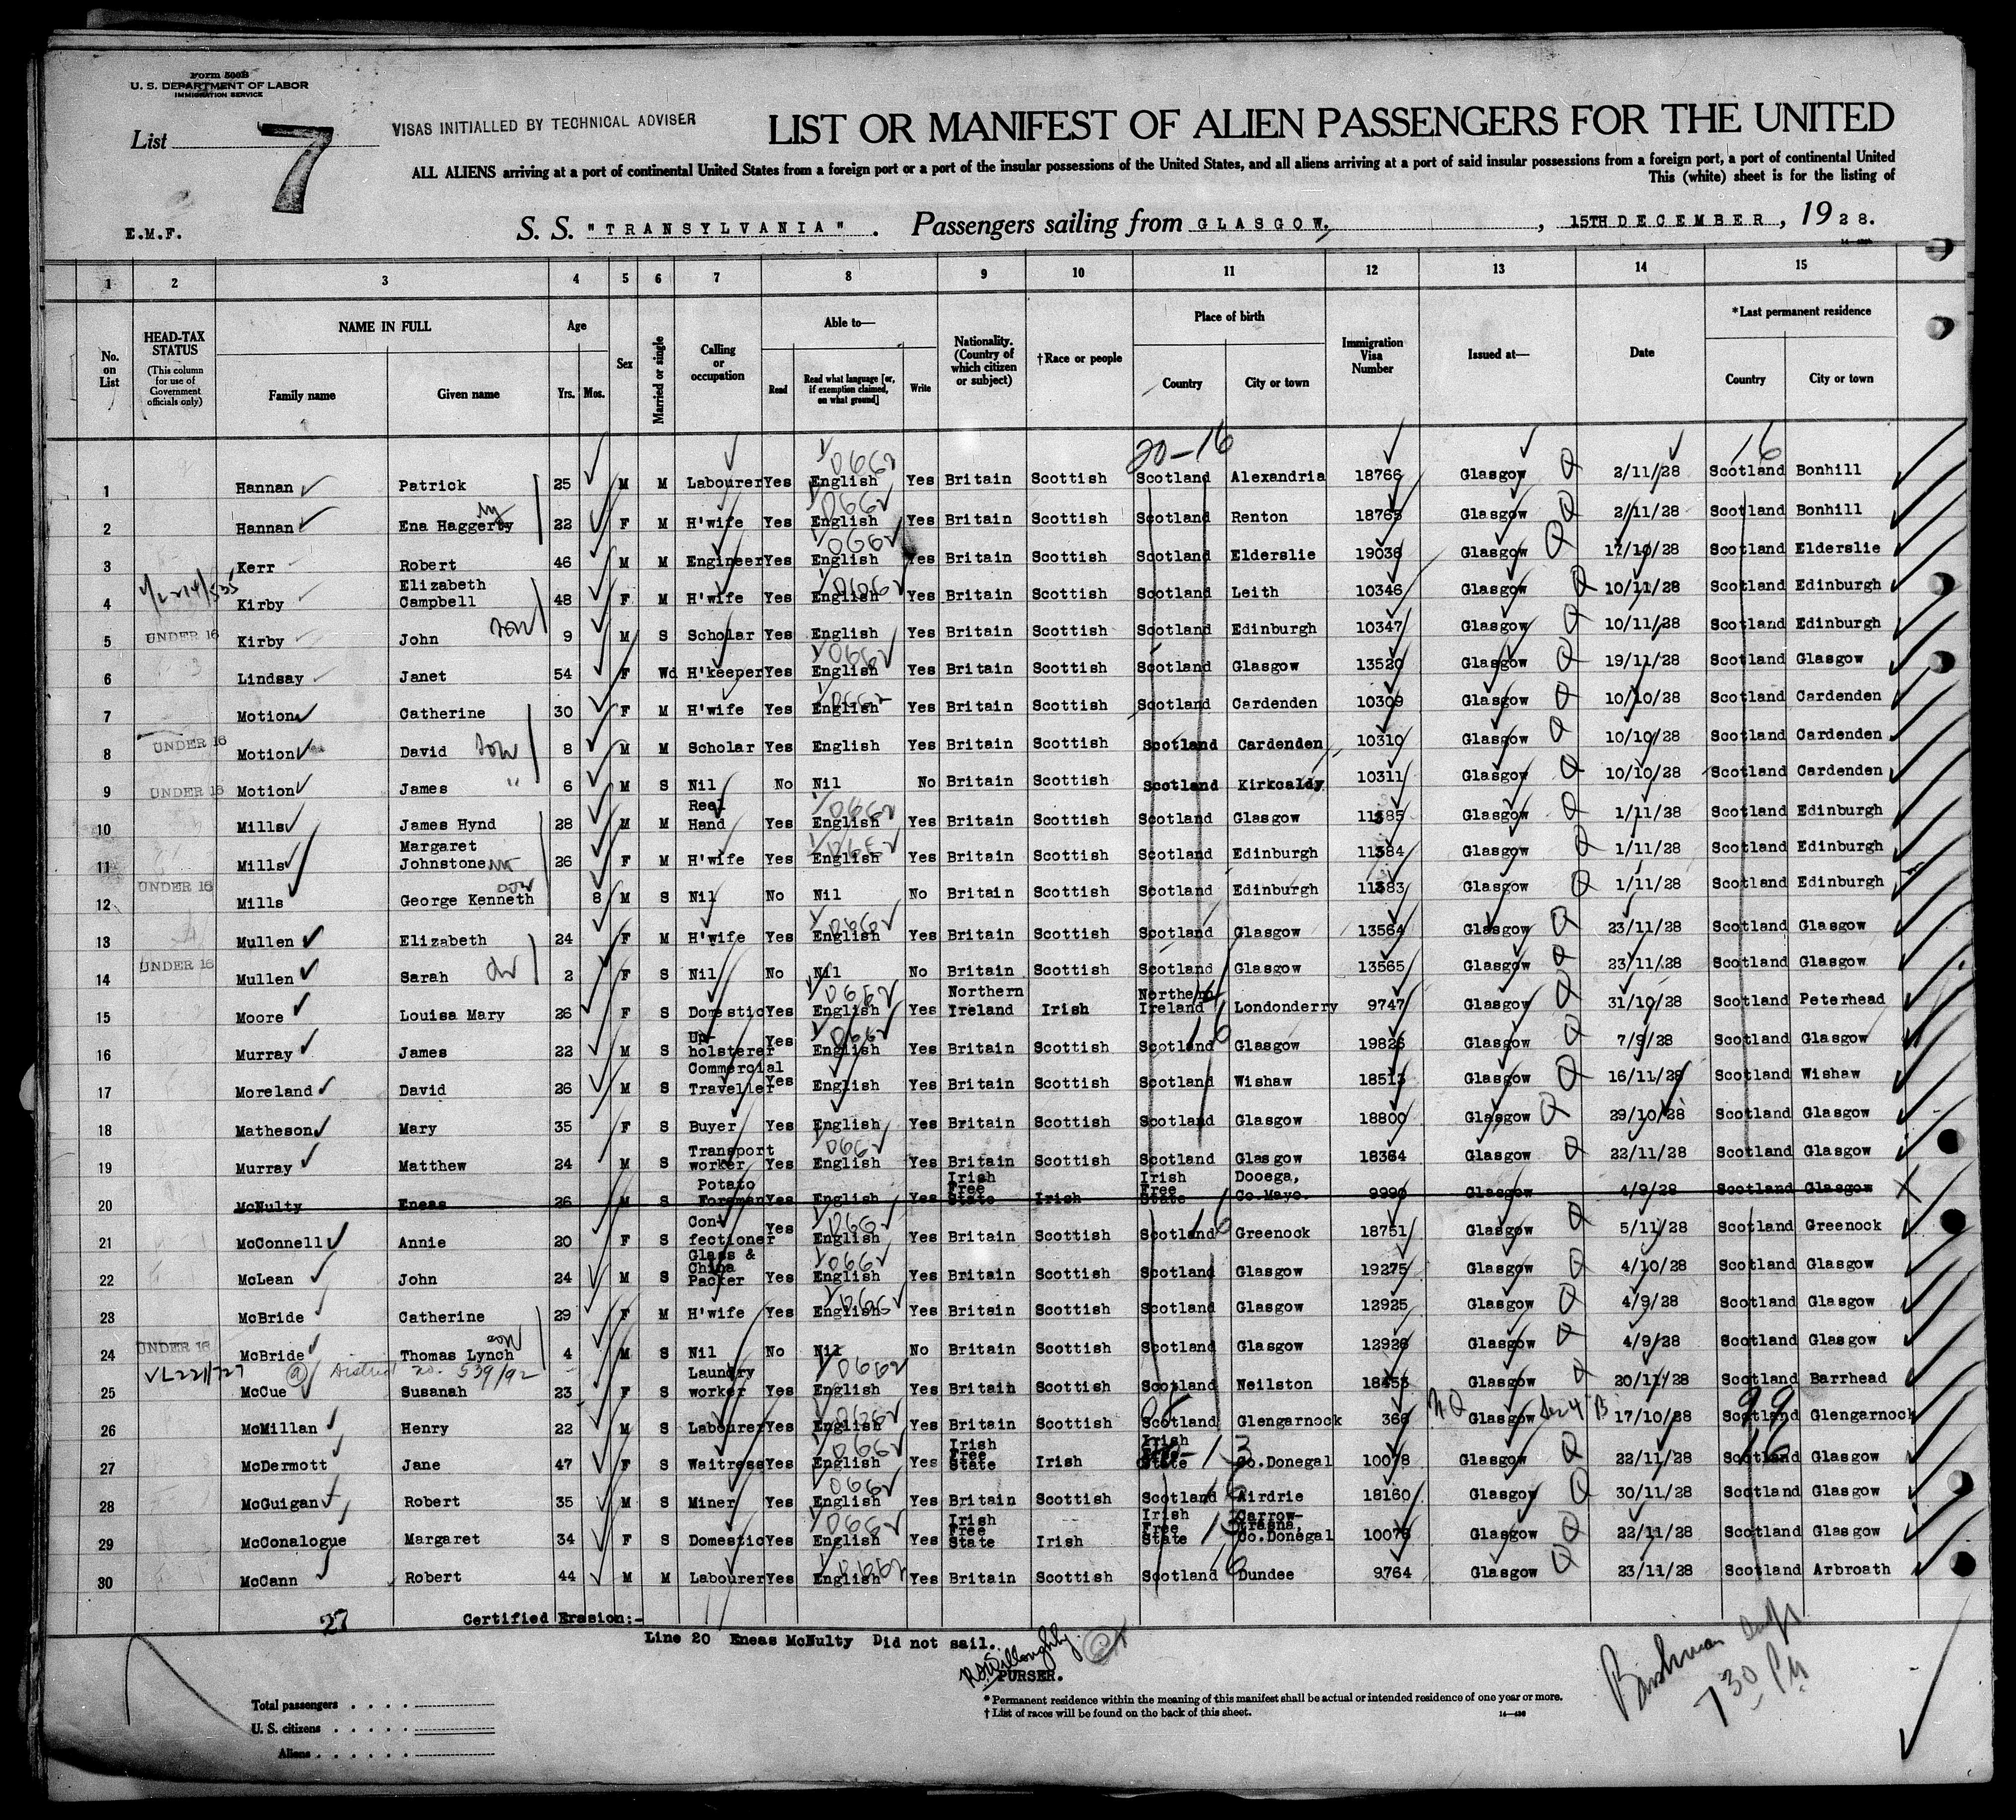 Form 500B
U. S. DEPARTMENT OF LABOR
IMMIGRATION SERVICE
List 7
VISAS INITIALLED BY TECHNICAL ADVISER
LIST OR MANIFEST OF ALIEN PASSENGERS FOR THE UNITED
ALL ALIENS arriving at a port of continental United States from a foreign port or a port of the insular possessions of the United States, and all aliens arriving at a port of said insular possessions from a foreign port, a port of continental United
This (white) sheet is for the listing of
E.M.F.
S. S. "TRANSYLVANIA". Passengers sailing from GLASGOW, , 15TH DECEMBER, 1928.
1 2 3 4 5 6 7 8 9 10 11 12 13 14 15
No. on List
HEAD-TAX STATUS (This column for use of Government officials only)
NAME IN FULL Family name Given name
Age Yrs. Mos.
Sex
Married or single
Calling or occupation
Able to— Read Read what language [or, if exemption claimed, on what ground] Write
Nationality. (Country of which citizen or subject)
†Race or people
Place of birth Country City or town
Immigration Visa Number
Issued at—
Date
*Last permanent residence Country City or town
20-16 16
1 Hannan Patrick 25 M M Labourer Yes English Yes Britain Scottish Scotland Alexandria 18766 Glasgow 2/11/28 Scotland Bonhill
2 Hannan Ena Haggerty 22 F M H'wife Yes English Yes Britain Scottish Scotland Renton 18765 Glasgow 2/11/28 Scotland Bonhill
3 Kerr Robert 46 M M Engineer Yes English Yes Britain Scottish Scotland Elderslie 19036 Glasgow 17/10/28 Scotland Elderslie
4 Kirby Elizabeth Campbell 48 F M H'wife Yes English Yes Britain Scottish Scotland Leith 10346 Glasgow 10/11/28 Scotland Edinburgh
5 UNDER 16 Kirby John son 9 M S Scholar Yes English Yes Britain Scottish Scotland Edinburgh 10347 Glasgow 10/11/28 Scotland Edinburgh
6 Lindsay Janet 54 F Wd H'keeper Yes English Yes Britain Scottish Scotland Glasgow 13520 Glasgow 19/11/28 Scotland Glasgow
7 Motion Catherine 30 F M H'wife Yes English Yes Britain Scottish Scotland Cardenden 10309 Glasgow 10/10/28 Scotland Cardenden
8 UNDER 16 Motion David son 8 M M Scholar Yes English Yes Britain Scottish Scotland Cardenden 10310 Glasgow 10/10/28 Scotland Cardenden
9 UNDER 16 Motion James " 6 M S Nil No Nil No Britain Scottish Scotland Kirkcaldy 10311 Glasgow 10/10/28 Scotland Cardenden
10 Mills James Hynd 28 M M Reel Hand Yes English Yes Britain Scottish Scotland Glasgow 11385 Glasgow 1/11/28 Scotland Edinburgh
11 Mills Margaret Johnstone 26 F M H'wife Yes English Yes Britain Scottish Scotland Edinburgh 11384 Glasgow 1/11/28 Scotland Edinburgh
12 UNDER 16 Mills George Kenneth son 8 M S Nil No Nil No Britain Scottish Scotland Edinburgh 11383 Glasgow 1/11/28 Scotland Edinburgh
13 Mullen Elizabeth 24 F M H'wife Yes English Yes Britain Scottish Scotland Glasgow 13564 Glasgow 23/11/28 Scotland Glasgow
14 UNDER 16 Mullen Sarah 2 F S Nil No Nil No Britain Scottish Scotland Glasgow 13565 Glasgow 23/11/28 Scotland Glasgow
15 Moore Louisa Mary 26 F S Domestic Yes English Yes Northern Ireland Irish Northern Ireland Londonderry 9747 Glasgow 31/10/28 Scotland Peterhead
16 Murray James 22 M S Upholsterer Yes English Yes Britain Scottish Scotland Glasgow 19826 Glasgow 7/9/28 Scotland Glasgow
17 Moreland David 26 M S Commercial Traveller Yes English Yes Britain Scottish Scotland Wishaw 18513 Glasgow 16/11/28 Scotland Wishaw
18 Matheson Mary 35 F S Buyer Yes English Yes Britain Scottish Scotland Glasgow 18800 Glasgow 29/10/28 Scotland Glasgow
19 Murray Matthew 24 M S Transport worker Yes English Yes Britain Scottish Scotland Glasgow 18364 Glasgow 22/11/28 Scotland Glasgow
20 McNulty Eneas 26 M S Potato Foreman Yes English Yes Irish Free State Irish Irish Free State Dooega, Co.Mayo. 9990 Glasgow 4/9/28 Scotland Glasgow X
21 McConnell Annie 20 F S Confectioner Yes English Yes Britain Scottish Scotland Greenock 18751 Glasgow 5/11/28 Scotland Greenock
22 McLean John 24 M S Glass & China Packer Yes English Yes Britain Scottish Scotland Glasgow 19275 Glasgow 4/10/28 Scotland Glasgow
23 McBride Catherine 29 F M H'wife Yes English Yes Britain Scottish Scotland Glasgow 12925 Glasgow 4/9/28 Scotland Glasgow
24 UNDER 16 McBride Thomas Lynch son 4 M S Nil No Nil No Britain Scottish Scotland Glasgow 12926 Glasgow 4/9/28 Scotland Glasgow
District 20. 539/92
25 McCue Susanah 23 F S Laundry worker Yes English Yes Britain Scottish Scotland Neilston 18453 Glasgow 20/11/28 Scotland Barrhead
26 McMillan Henry 22 M S Labourer Yes English Yes Britain Scottish Scotland Glengarnock 366 Glasgow 17/10/28 Scotland Glengarnock
27 McDermott Jane 47 F S Waitress Yes English Yes Irish Free State Irish Irish Free State Co.Donegal 10078 Glasgow 22/11/28 Scotland Glasgow
28 McGuigan Robert 35 M S Miner Yes English Yes Britain Scottish Scotland Airdrie 18160 Glasgow 30/11/28 Scotland Glasgow
29 McConalogue Margaret 34 F S Domestic Yes English Yes Irish Free State Irish Irish Free State Co.Donegal Glasgow 22/11/28 Scotland Glasgow
30 McCann Robert 44 M M Labourer Yes English Yes Britain Scottish Scotland Dundee 9764 Glasgow 23/11/28 Scotland Arbroath
27 Certified Erasion:-
Line 20 Eneas McNulty Did not sail.
R.S. Willoughby
PURSER.
730 PM
Total passengers
U. S. citizens
Aliens
* Permanent residence within the meaning of this manifest shall be actual or intended residence of one year or more.
† List of races will be found on the back of this sheet.